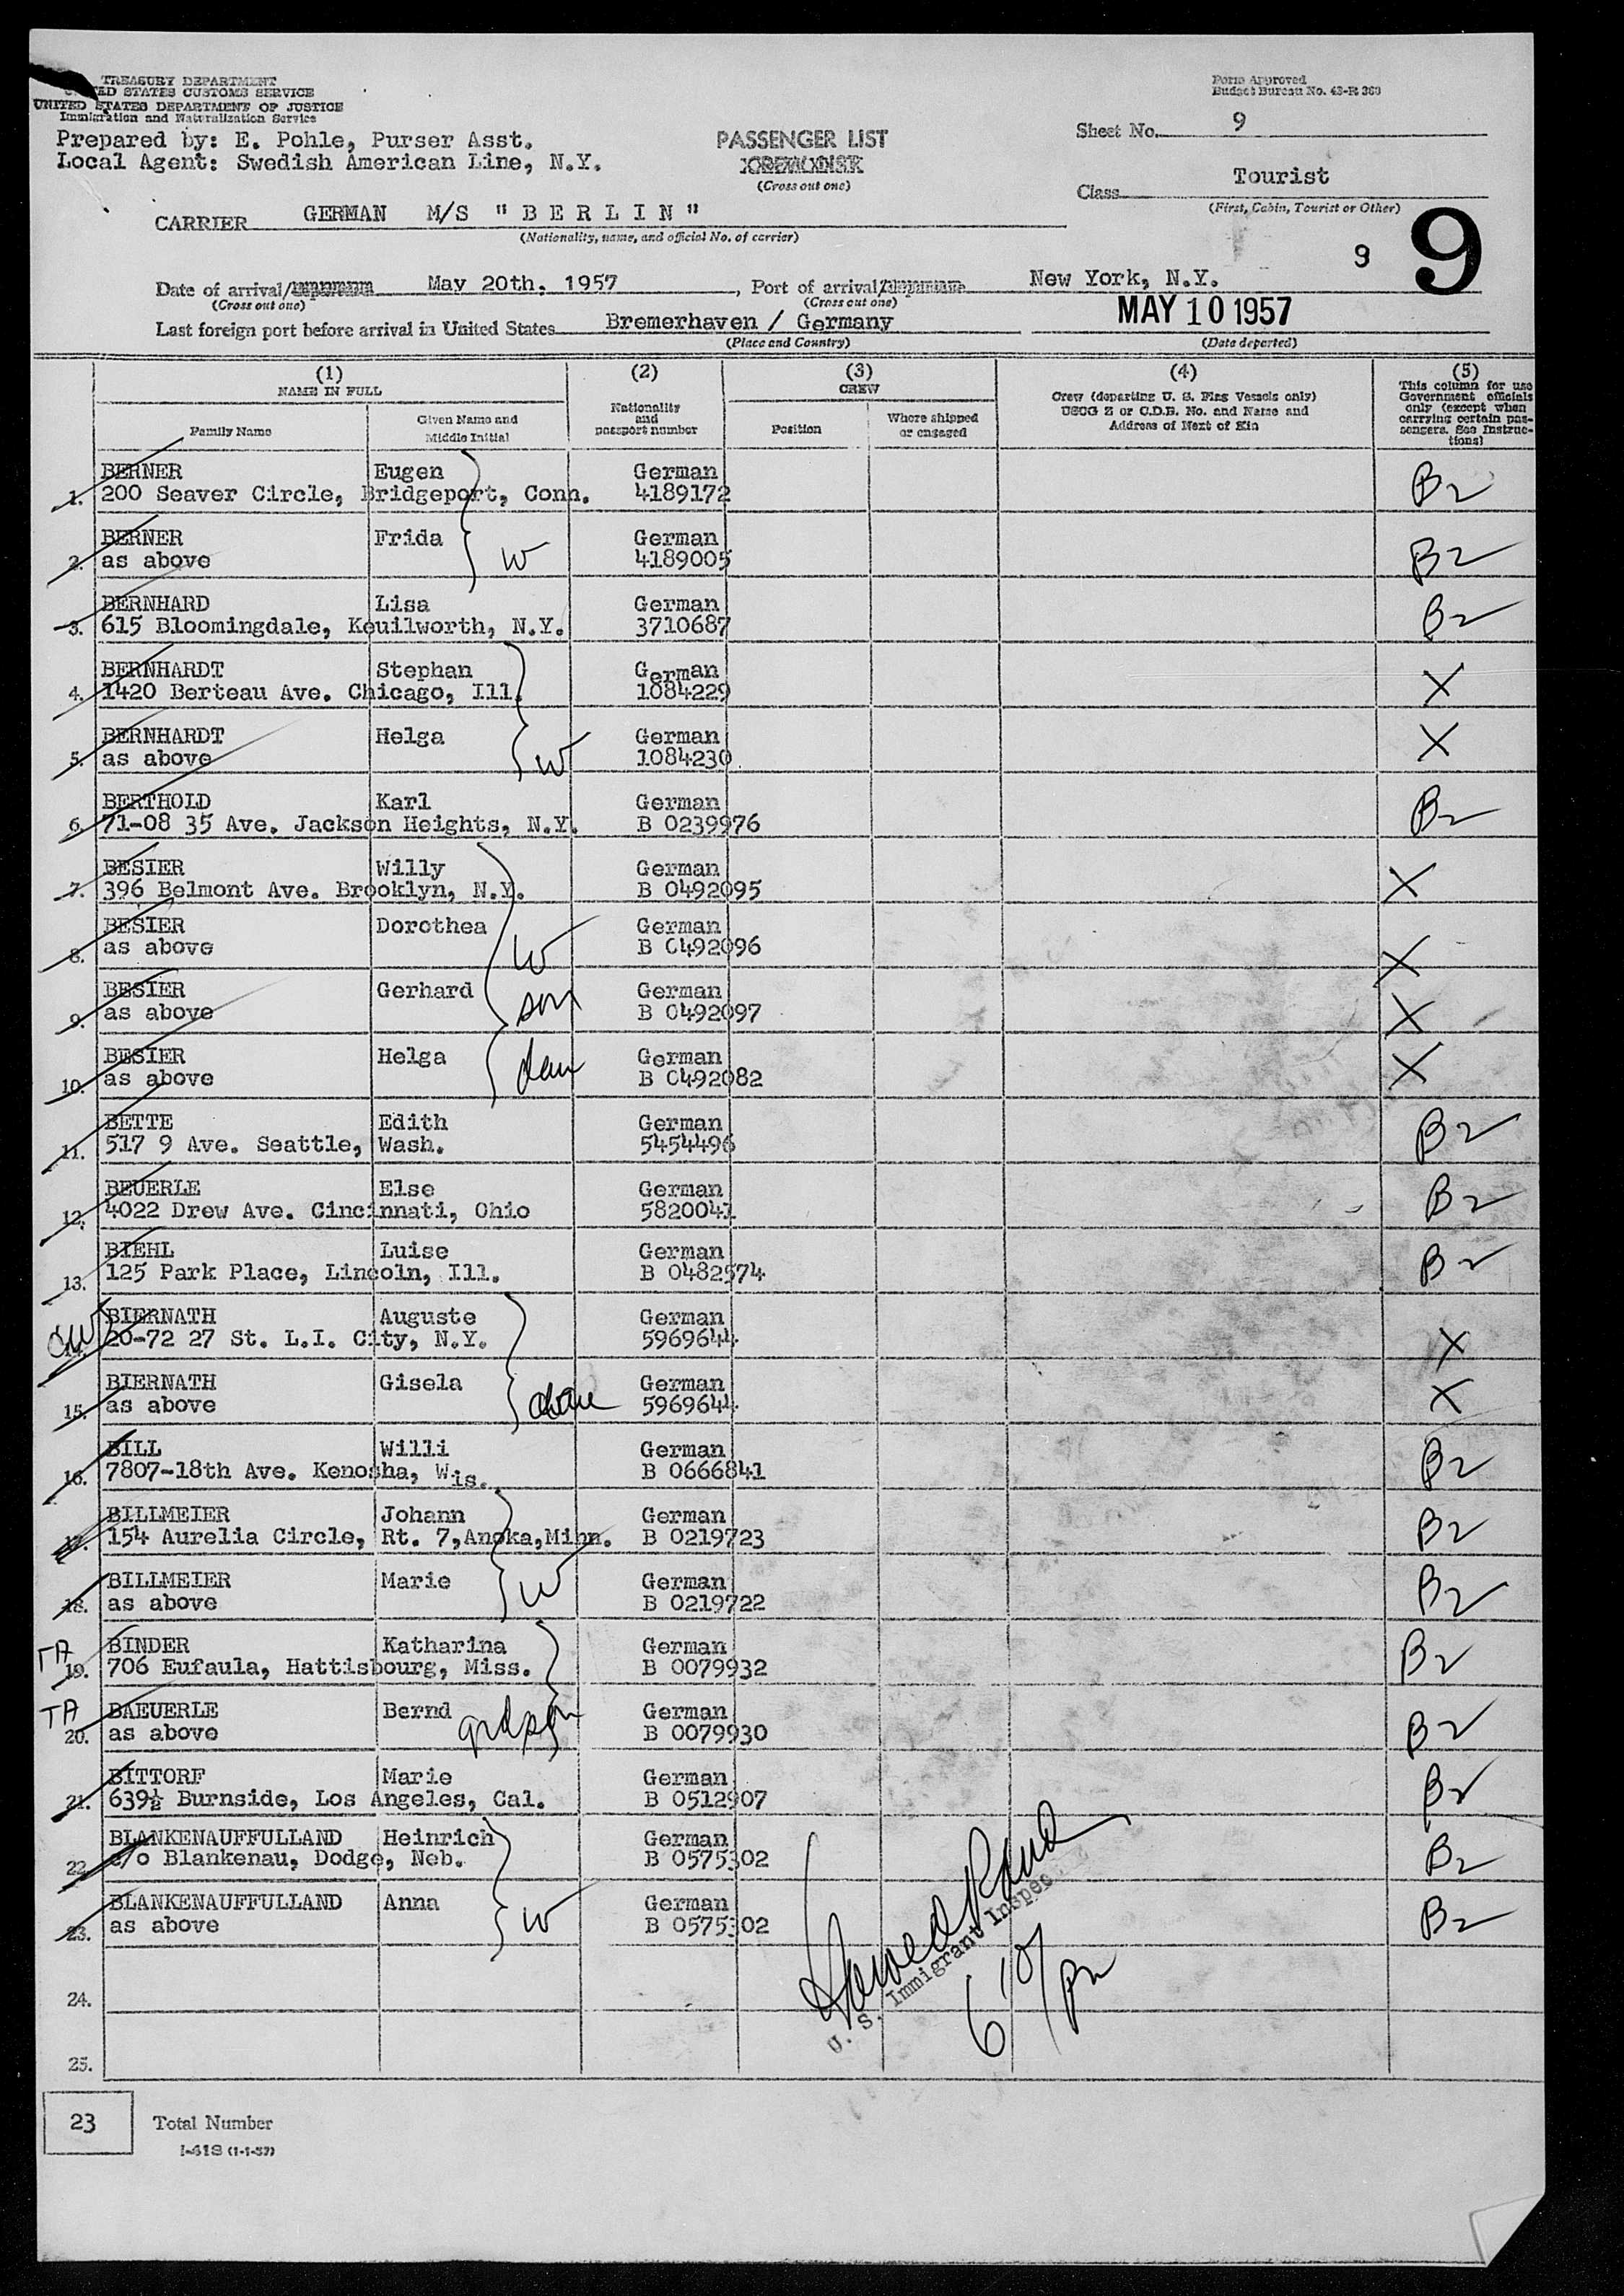 TREASURY DEPARTMENT
UNITED STATES CUSTOMS SERVICE
UNITED STATES DEPARTMENT OF JUSTICE
Immigration and Naturalization Service
Form Approved
Budget Bureau No. 43-R 360
Prepared by: E. Pohle, Purser Asst.
Local Agent: Swedish American Line, N.Y.
PASSENGER LIST
(Cross out one)
Sheet No. 9
Class Tourist
(First, Cabin, Tourist or Other)
CARRIER GERMAN M/S "BERLIN"
(Nationality, name, and official No. of carrier)
9 9
Date of arrival/ May 20th. 1957, Port of arrival/ New York, N.Y.
(Cross out one) (Cross out one)
MAY 10 1957
Last foreign port before arrival in United States Bremerhaven / Germany
(Place and Country) (Date departed)
(1) (2) (3) (4) (5)
NAME IN FULL
Family Name
Given Name and
Middle Initial
Nationality
and
passport number
CREW
Position
Where shipped
or engaged
Crew (departing U. S. Flag Vessels only)
USCG Z or C.D.B. No. and Name and
Address of Next of Kin
This column for use
Government officials
only (except when
carrying certain pas-
sengers. See Instruc-
tions)
BERNER Eugen German B2
1. 200 Seaver Circle, Bridgeport, Conn. 4189172
BERNER Frida W German B2
2. as above 4189005
BERNHARD Lisa German B2
3. 615 Bloomingdale, Keuilworth, N.Y. 3710687
BERNHARDT Stephan German X
4. 1420 Berteau Ave. Chicago, Ill. 1084229
BERNHARDT Helga W German X
5. as above 1084230
BERTHOLD Karl German B2
6. 71-08 35 Ave. Jackson Heights, N.Y. B 0239976
BESIER Willy German X
7. 396 Belmont Ave. Brooklyn, N.Y. B 0492095
BESIER Dorothea W German X
8. as above B 0492096
BESIER Gerhard son German X
9. as above B 0492097
BESIER Helga dau German X
10. as above B 0492082
BETTE Edith German B2
11. 517 9 Ave. Seattle, Wash. 5454496
BEUERLE Else German B2
12. 4022 Drew Ave. Cincinnati, Ohio 5820041
BIEHL Luise German B2
13. 125 Park Place, Lincoln, Ill. B 0482574
BIERNATH Auguste German X
14. 20-72 27 St. L.I. City, N.Y. 5969644
BIERNATH Gisela dau German X
15. as above 5969644
BILL Willi German B2
16. 7807-18th Ave. Kenosha, Wis. B 0666841
BILLMEIER Johann German B2
17. 154 Aurelia Circle, Rt. 7,Anoka,Minn. B 0219723
BILLMEIER Marie W German B2
18. as above B 0219722
TA BINDER Katharina German B2
19. 706 Eufaula, Hattisbourg, Miss. B 0079932
TA BAEUERLE Bernd grdson German B2
20. as above B 0079930
BITTORF Marie German B2
21. 639½ Burnside, Los Angeles, Cal. B 0512907
BLANKENAUFFULLAND Heinrich German B2
22. c/o Blankenau, Dodge, Neb. B 0575302
BLANKENAUFFULLAND Anna W German B2
23. as above B 0575302
U. S. Immigrant Inspec
24.
25.
23 Total Number
I-418 (1-1-57)